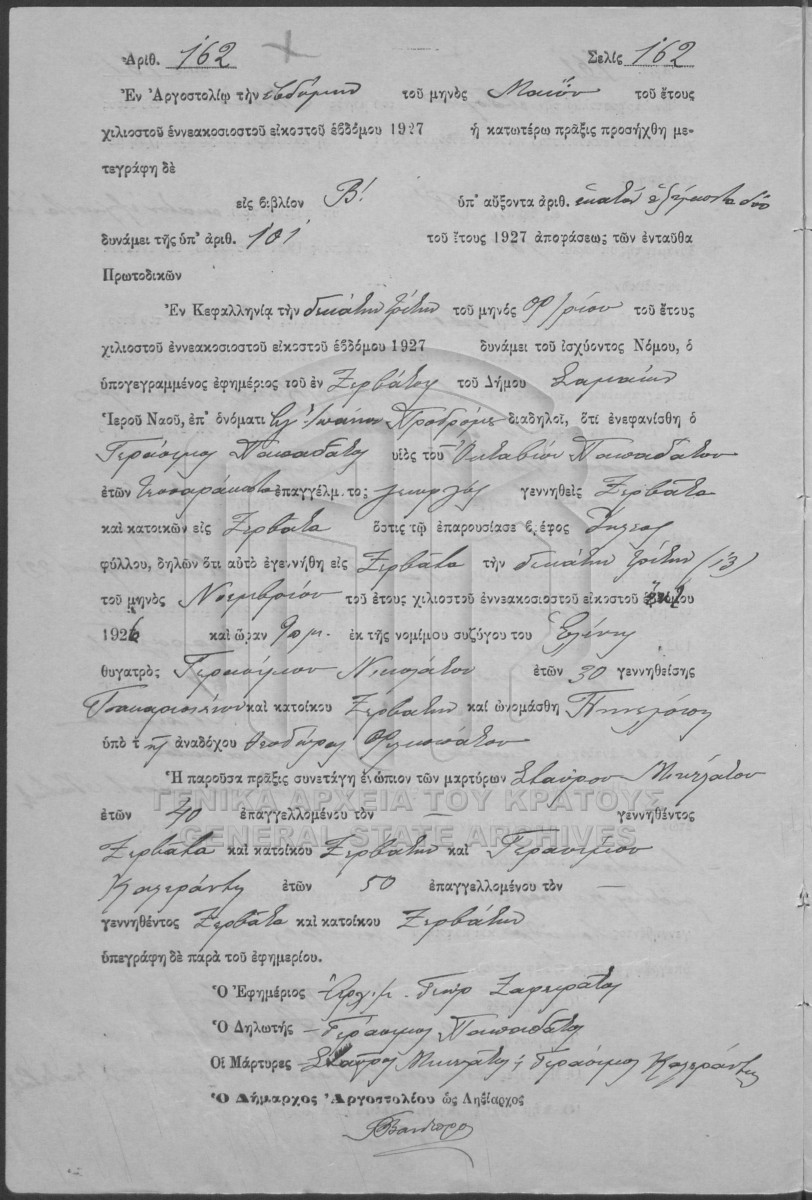 Ἀριθ. 162 Σελίς 162
Ἐν Ἀργοστολίῳ τὴν ἑβδόμην τοῦ μηνὸς Μαΐου τοῦ ἔτους
χιλιοστοῦ ἐννεακοσιοστοῦ εἰκοστοῦ ἑβδόμου 1927 ἡ κατωτέρω πρᾶξις προσήχθη με-
τεγράφη δὲ
εἰς βιβλίον Β! ὑπ' αὔξοντα ἀριθ. ἑκατὸν ἑξήκοντα δύο
δυνάμει τῆς ὑπ' ἀριθ. 101 τοῦ ἔτους 1927 ἀποφάσεως τῶν ἐνταῦθα
Πρωτοδικῶν
Ἐν Κεφαλληνίᾳ τὴν δεκάτην τρίτην τοῦ μηνός Φ/ρίου τοῦ ἔτους
χιλιοστοῦ ἐννεακοσιοστοῦ εἰκοστοῦ ἑβδόμου 1927 δυνάμει τοῦ ἰσχύοντος Νόμου, ὁ
ὑπογεγραμμένος ἐφημέριος τοῦ ἐν Ζερβάτοις τοῦ Δήμου Σαμαίων
Ἱεροῦ Ναοῦ, ἐπ' ὀνόματι Ἁγ. Ἰωάννου Προδρόμου διαδηλοῖ, ὅτι ἐνεφανίσθη ὁ
Γεράσιμος Παπαδᾶτος υἱὸς τοῦ Ὀκταβίου Παπαδάτου
ἐτῶν τεσσαράκοντα ἐπαγγέλμ. τος γεωργὸς γεννηθεὶς Ζερβάτα
καὶ κατοικῶν εἰς Ζερβάτα ὅστις τῷ ἐπαρουσίασε βρέφος θήλεος
φύλλου, δηλῶν ὅτι αὐτὸ ἐγεννήθη εἰς Ζερβάτα τὴν δεκάτην τρίτην (13)
τοῦ μηνὸς Νοεμβρίου τοῦ ἔτους χιλιοστοῦ ἐννεακοσιοστοῦ εἰκοστοῦ
1926 καὶ ὥραν 9 π.μ. ἐκ τῆς νομίμου συζύγου του Ἑλένης
θυγατρὸς Γερασίμου Νικολάτου ἐτῶν 30 γεννηθείσης
καὶ κατοίκου Ζερβάτων καί ὠνομάσθη Πηνελόπη
ὑπὸ τῆς ἀναδόχου Θεοδώρας
Ἡ παροῦσα πρᾶξις συνετάγη ἐνώπιον τῶν μαρτύρων Σταύρου Μικελάτου
ΓΕΝΙΚΑ ΑΡΧΕΙΑ ΤΟΥ ΚΡΑΤΟΥΣ
ἐτῶν 40 ἐπαγγελλομένου τὸν — γεννηθέντος
GENERAL STATE ARCHIVES
Ζερβάτα καὶ κατοίκου Ζερβάτων καὶ Γερασίμου
Καλεράντη ἐτῶν 50 ἐπαγγελλομένου τὸν —
γεννηθέντος Ζερβάτα καὶ κατοίκου Ζερβάτων
ὑπεγράφη δὲ παρὰ τοῦ ἐφημερίου.
Ὁ Ἐφημέριος Γεώρ Ζαφειρᾶτος
Ὁ Δηλωτής – Γεράσιμος Παπαδᾶτος
Οἱ Μάρτυρες – Σταῦρος Μικελᾶτος Γεράσιμος Καλεράντης
Ὁ Δήμαρχος Ἀργοστολίου ὡς Ληξίαρχος